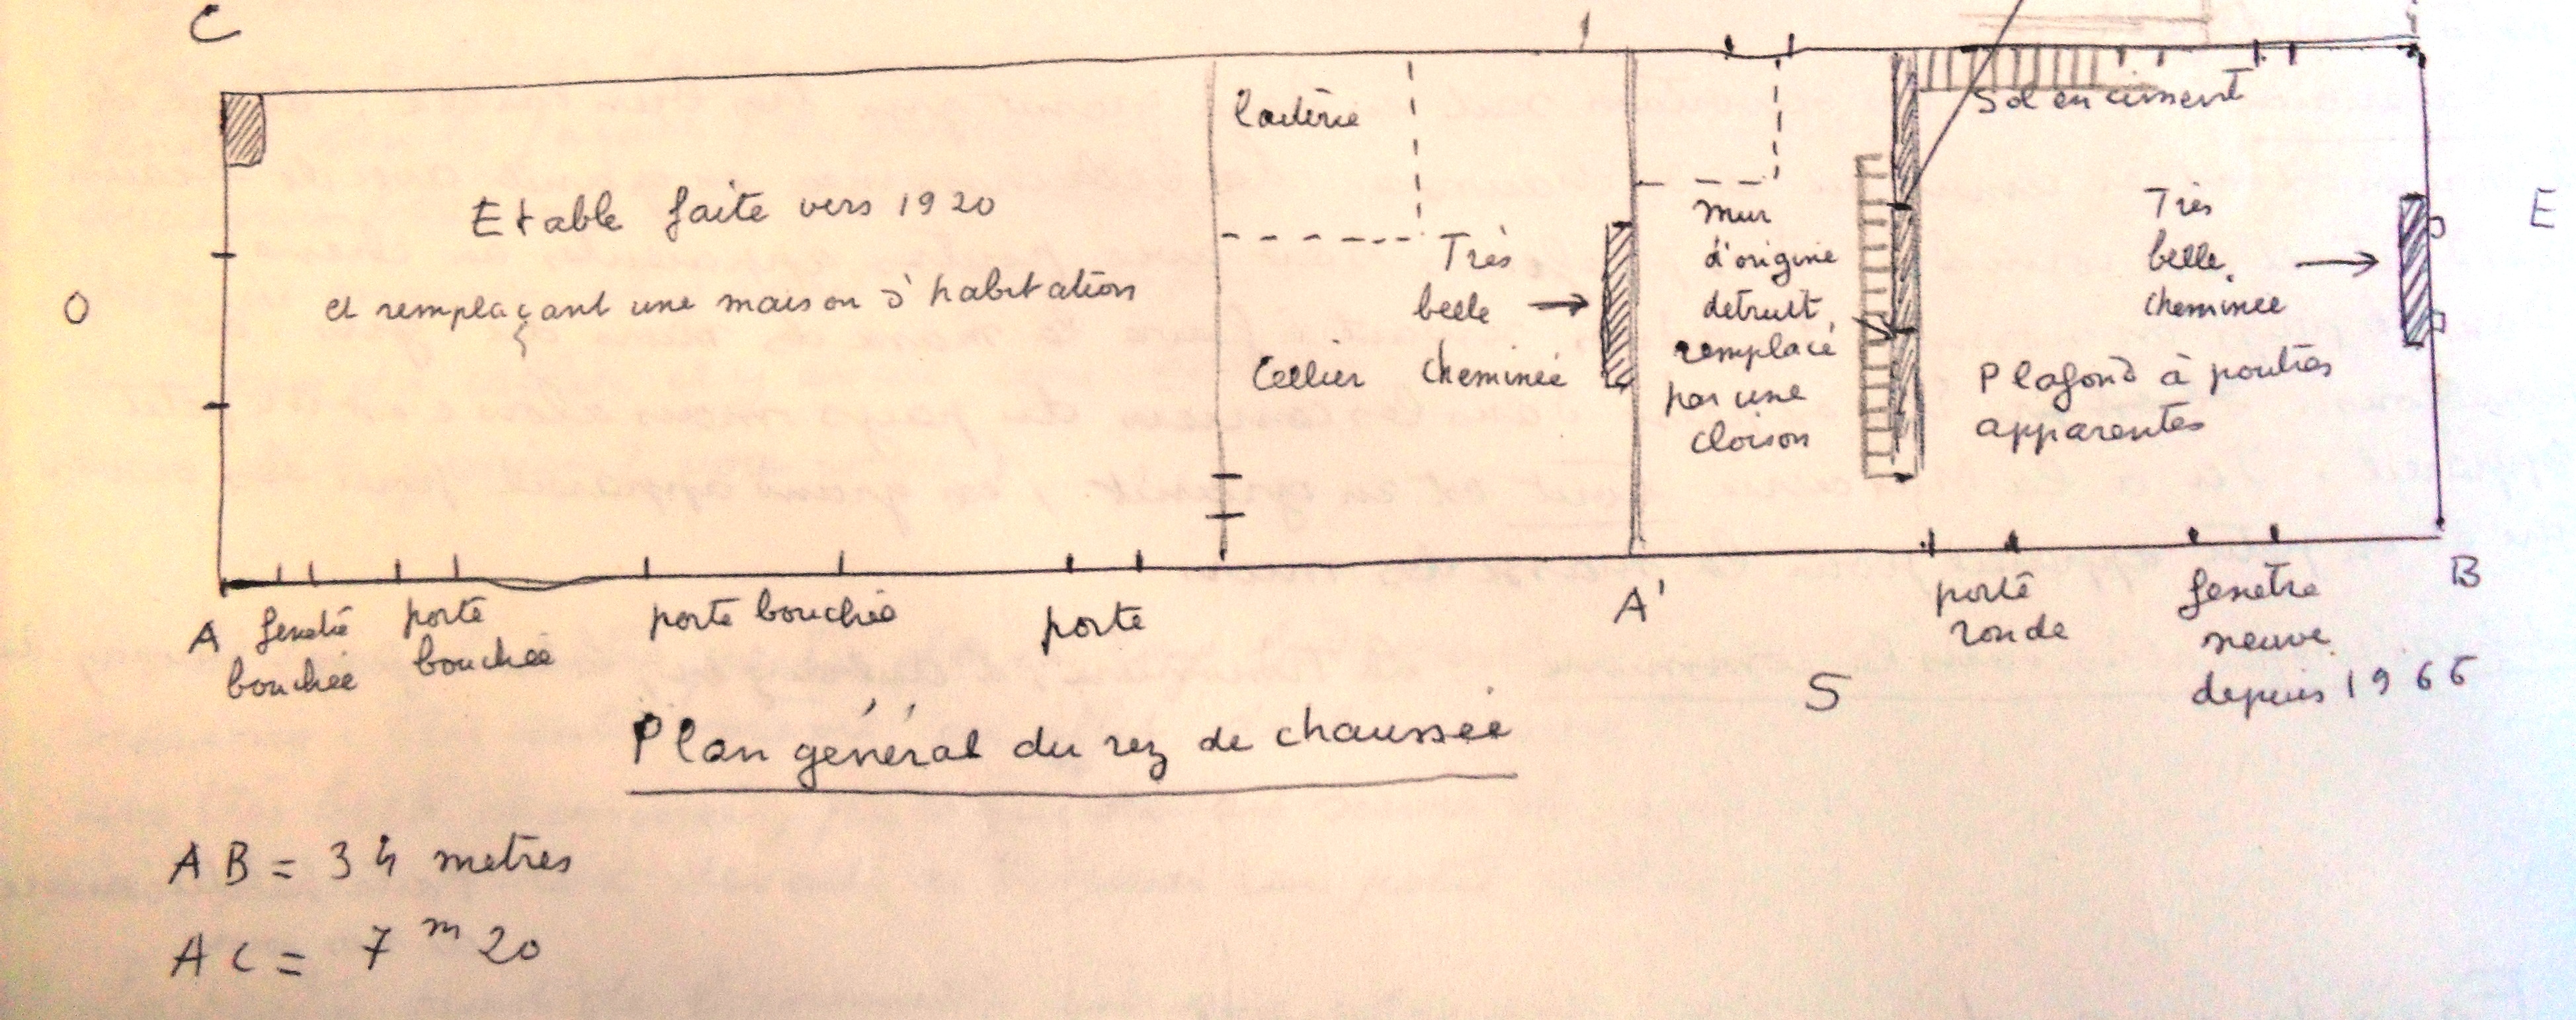 C
laiterie
Sol en ciment
Etable faite vers 1920
et remplaçant une maison d'habitation
O
E
Très
belle
Cellier cheminée
mur
d'origine
detruit
remplacé
par une
cloison
Très
belle
cheminée
Plafond à poutres
apparentes
A
fenetre
bouchée
porte
bouchée
porte bouchée
porte
A'
porte
ronde
fenetre
neuve
depuis 1966
B
S
Plan général du rez de chaussée
AB = 34 metres
AC = 7 m 20